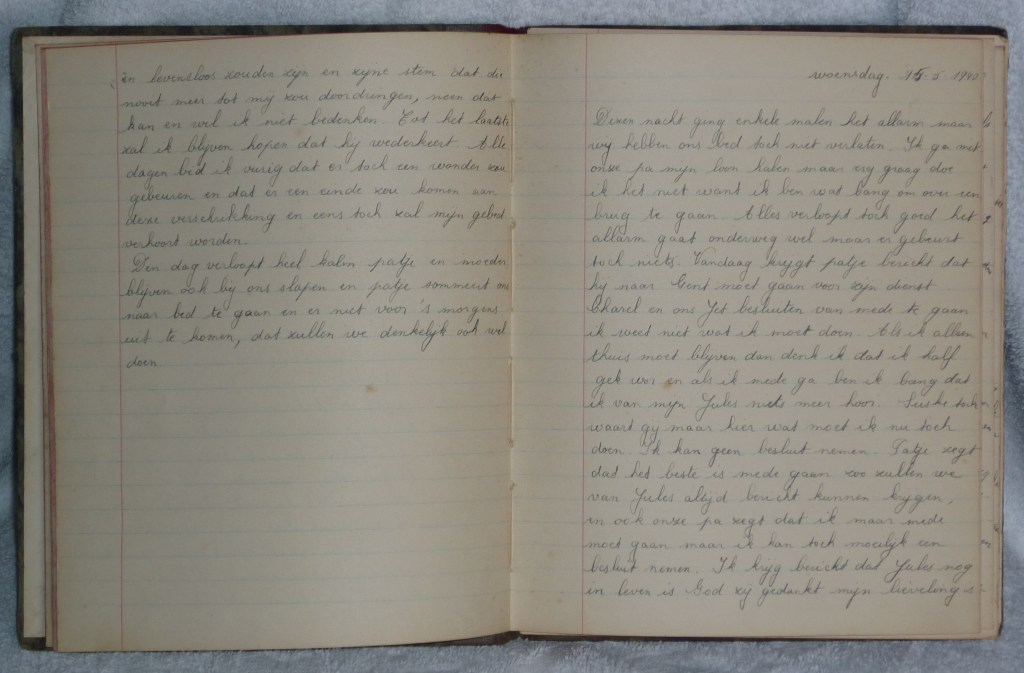 en levensloos zouden zijn en zijne stem dat die
nooit meer tot mij zou doordringen, neen dat
kan en wil ik niet bedenken. Tot het laatste
zal ik blijven hopen dat hij wederkeert. Alle
dagen bid ik vurig dat er toch een wonder zou
gebeuren en dat er een einde zou komen aan
deze verschrikking en eens toch zal mijn gebed
verhoort worden.
Den dag verloopt heel kalm patje en moeder
blijven ook bij ons slapen en patje sommeert ons
naar bed te gaan en er niet voor 's morgens
uit te komen, dat zullen we denkelijk ook wel
doen
woensdag. 15-5-1940
Dezen nacht ging enkele malen het allarm maar
wij hebben ons bed toch niet verlaten. Ik ga met
onze pa mijn loon halen maar erg graag doe
ik het niet want ik ben wat bang om over een
brug te gaan. Alles verloopt toch goed het
allarm gaat onderweg wel maar er gebeurt
toch niets. Vandaag krijgt patje bericht dat
hij naar Gent moet gaan voor zijn dienst
Charel en ons Jet besluiten van mede te gaan
ik weet niet wat ik moet doen. Als ik alleen
thuis moet blijven dan denk ik dat ik half
gek wor en als ik mede ga ben ik bang dat
ik van mijn Jules niets meer hoor. toch
waart gij maar hier wat moet ik nu toch
doen. Ik kan geen besluit nemen. Patje zegt
dat het beste is mede gaan zoo zullen we
van Jules altijd bericht kunnen krijgen,
en ook onze pa zegt dat ik maar mede
moet gaan maar ik kan toch moeilijk een
besluit nemen. Ik krijg bericht dat Jules nog
in leven is God zij gedankt mijn lieveling is